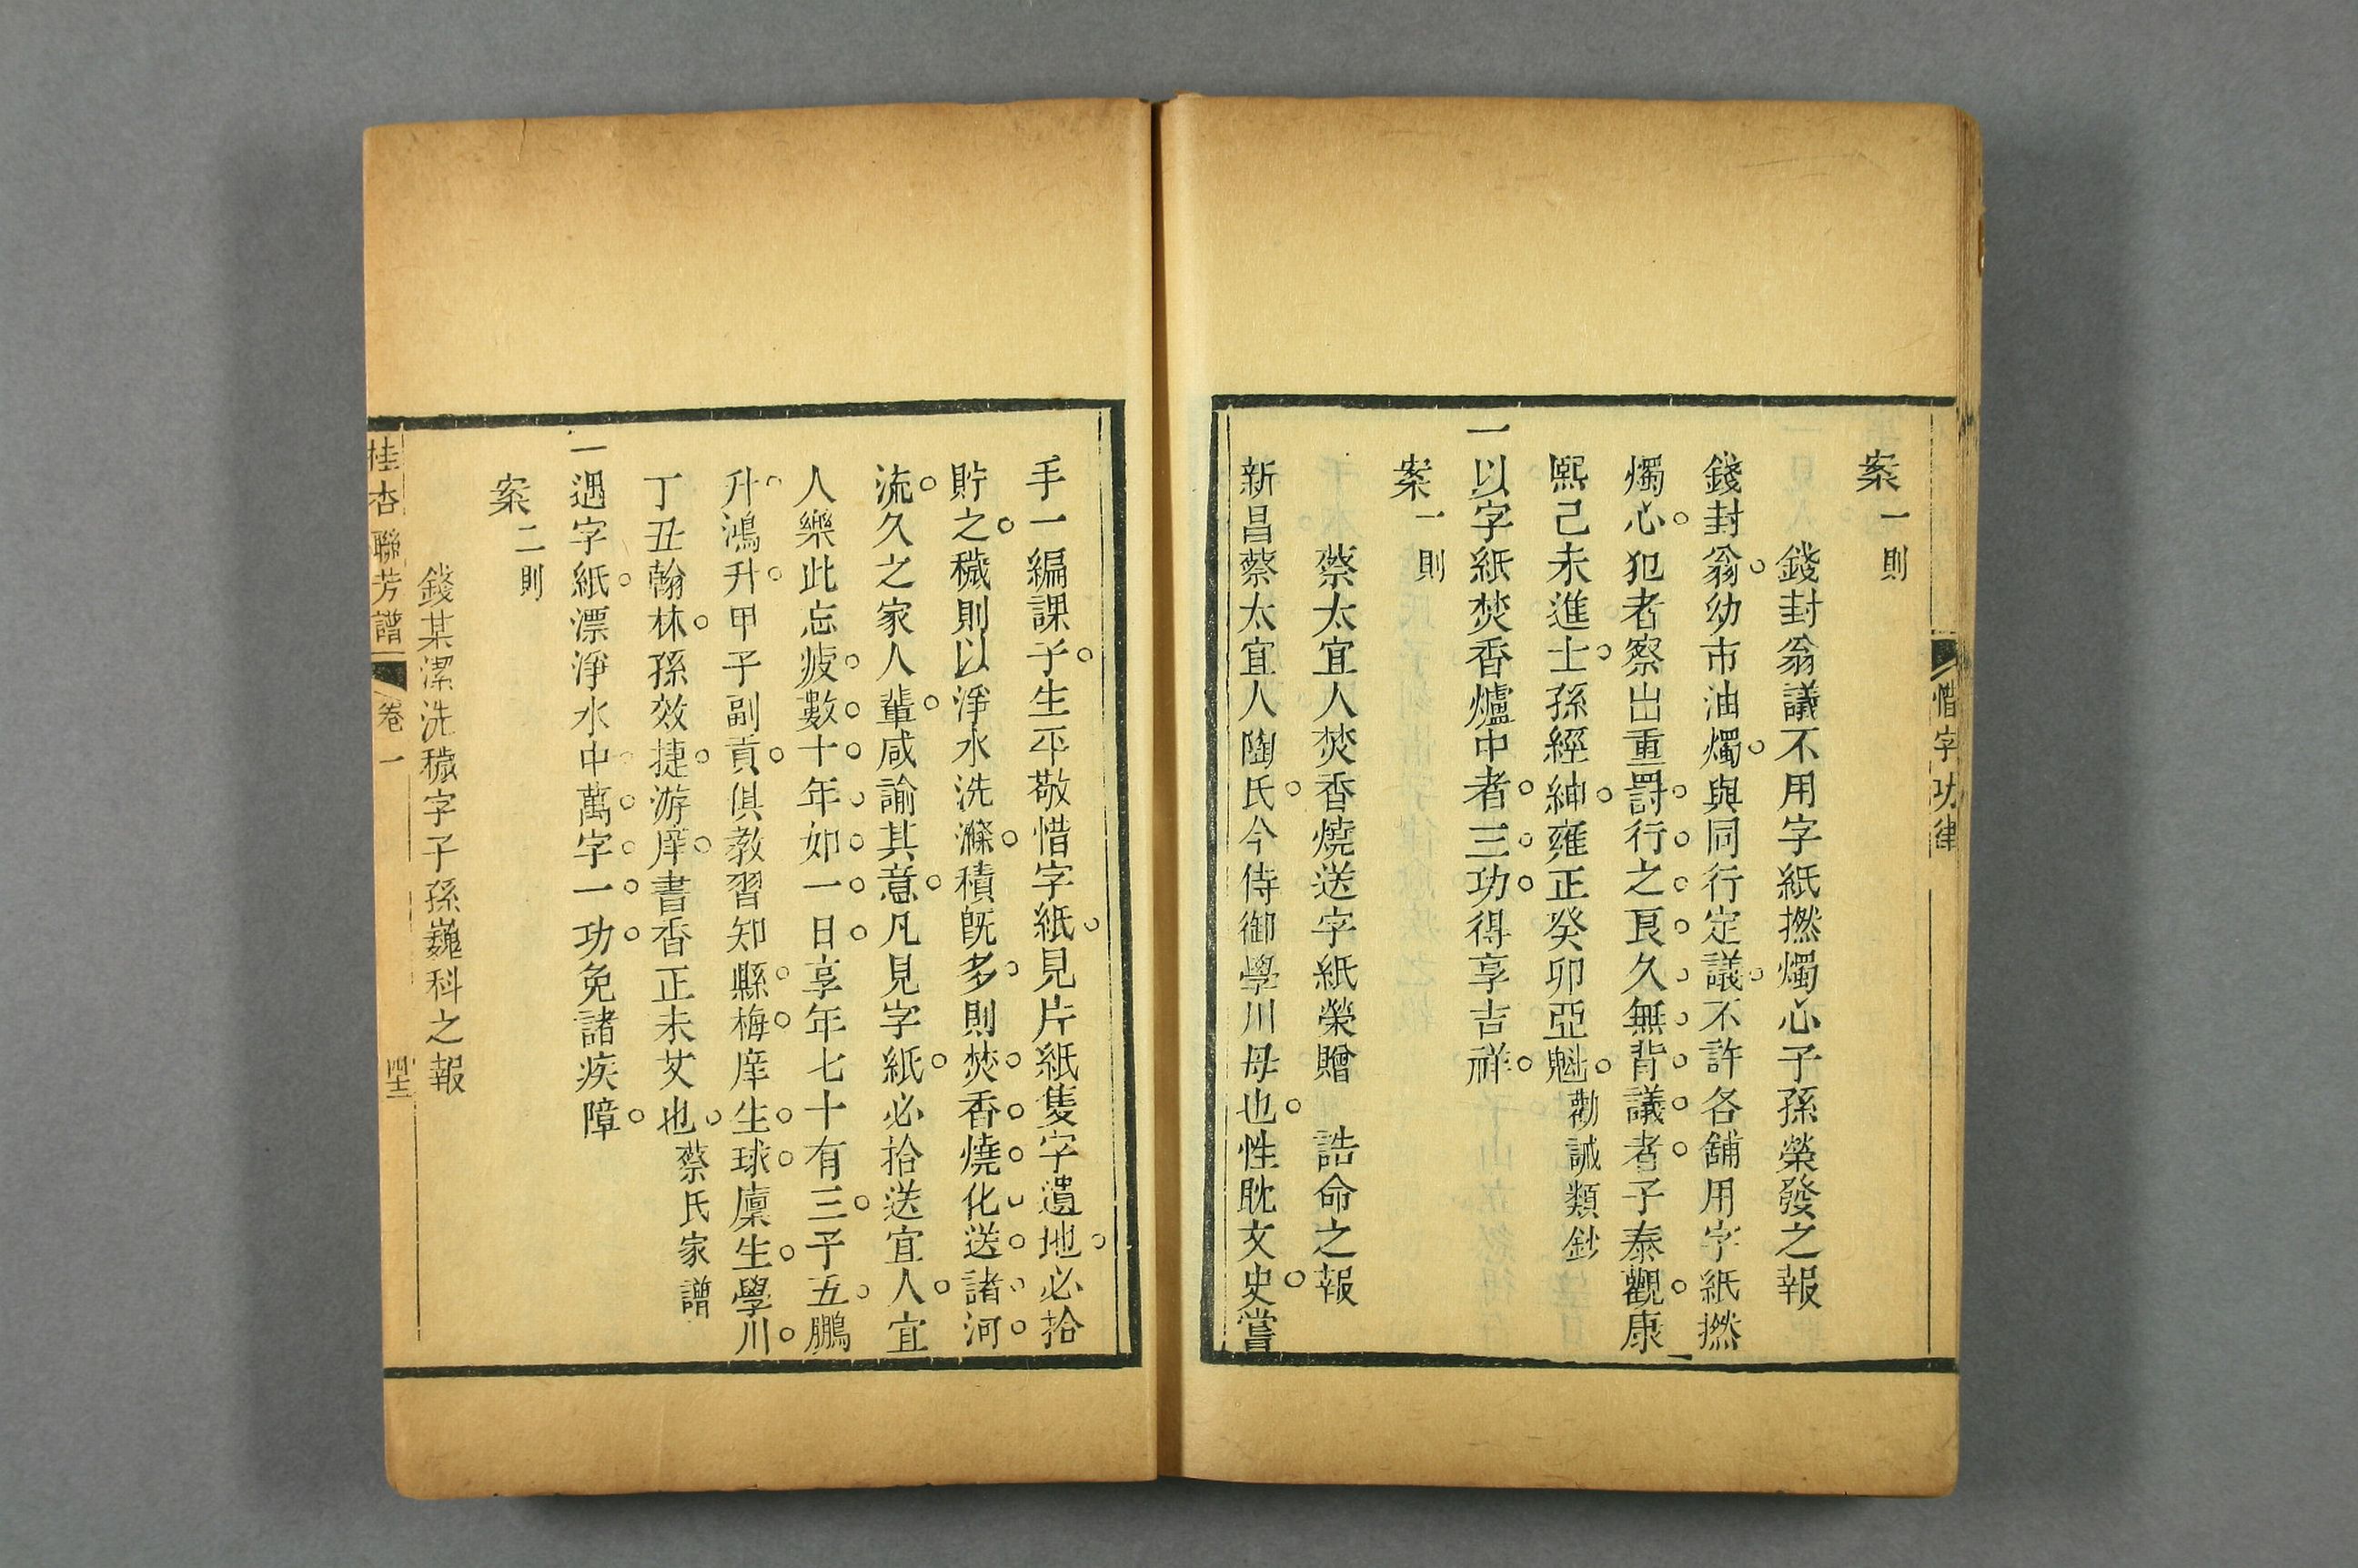 惜字功律
案一則
錢封翁議不用字紙撚燭心子孫榮發之報
錢封翁。幼市油燭。與同行定議。不許各舖用字紙撚
燭心。犯者察出重罰。行。之。艮。久。無。背。議。者。子泰觀。康
熙己未進士。孫經紳。雍正癸卯亞魁。勸誡類鈔
一以字紙焚香爐中者。三。功。得享吉祥。
案一則
蔡太宜人焚香燒送字紙榮贈 誥命之報
新昌蔡太宜人陶氏。今侍御學川母也。性耽文史。嘗
手一編課子。生平敬惜字紙。見片紙隻字遺地。必拾
貯之。穢則以淨水洗滌。積旣多。則焚。香。燒。化。送。諸。河。
流。久之家人輩。咸諭其意。凡見字紙。必拾送宜人。宜
人樂此忘疲。數。十。年。如。一。日。享年七十有三。子五。鵬
升。鴻升。甲子副貢。俱教習知縣。梅。庠生。球。廩生。學川。
丁丑翰林。孫效捷。游庠。書香正未艾也。蔡氏家譜
一遇字紙。漂淨水中。萬。字。一。功。免諸疾障。
案二則
錢某潔洗穢字子孫巍科之報
桂杏聯芳譜 卷一 四十三